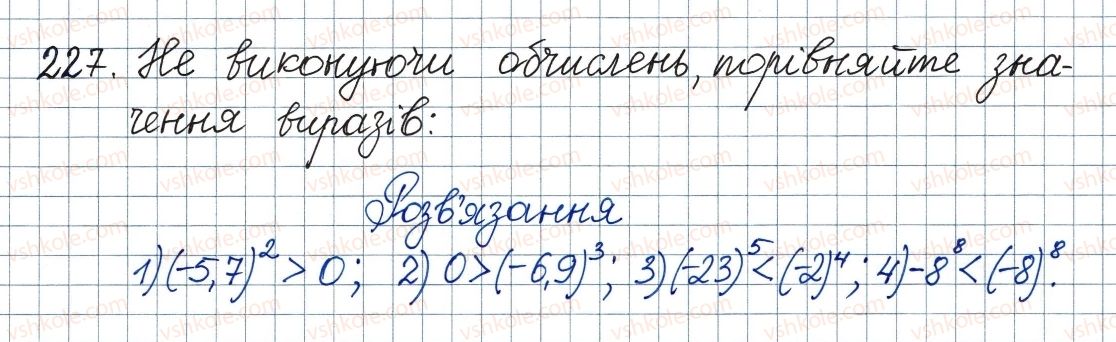 227. Не виконуючи обчислень, порівняйте зна-
чення виразів:
Розв'язання
1) (-5,7)² > 0; 2) 0 > (-6,9)³; 3) (-23)⁵ < (-2)⁴; 4) -8⁸ < (-8)⁸.